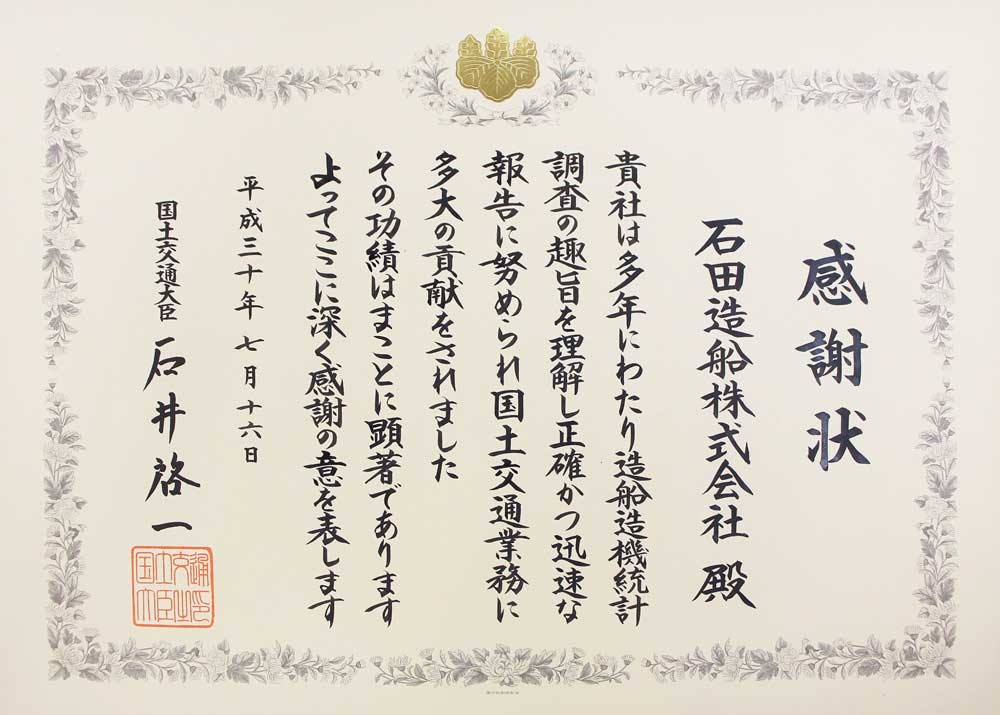 感謝状
石田造船株式会社 殿
貴社は多年にわたり造船造機統計
調査の趣旨を理解し正確かつ迅速な
報告に努められ国土交通業務に
多大の貢献をされました
その功績はまことに顕著であります
よってここに深く感謝の意を表します
平成三十年七月十六日
国土交通大臣 石井啓一
国土交通大臣之印